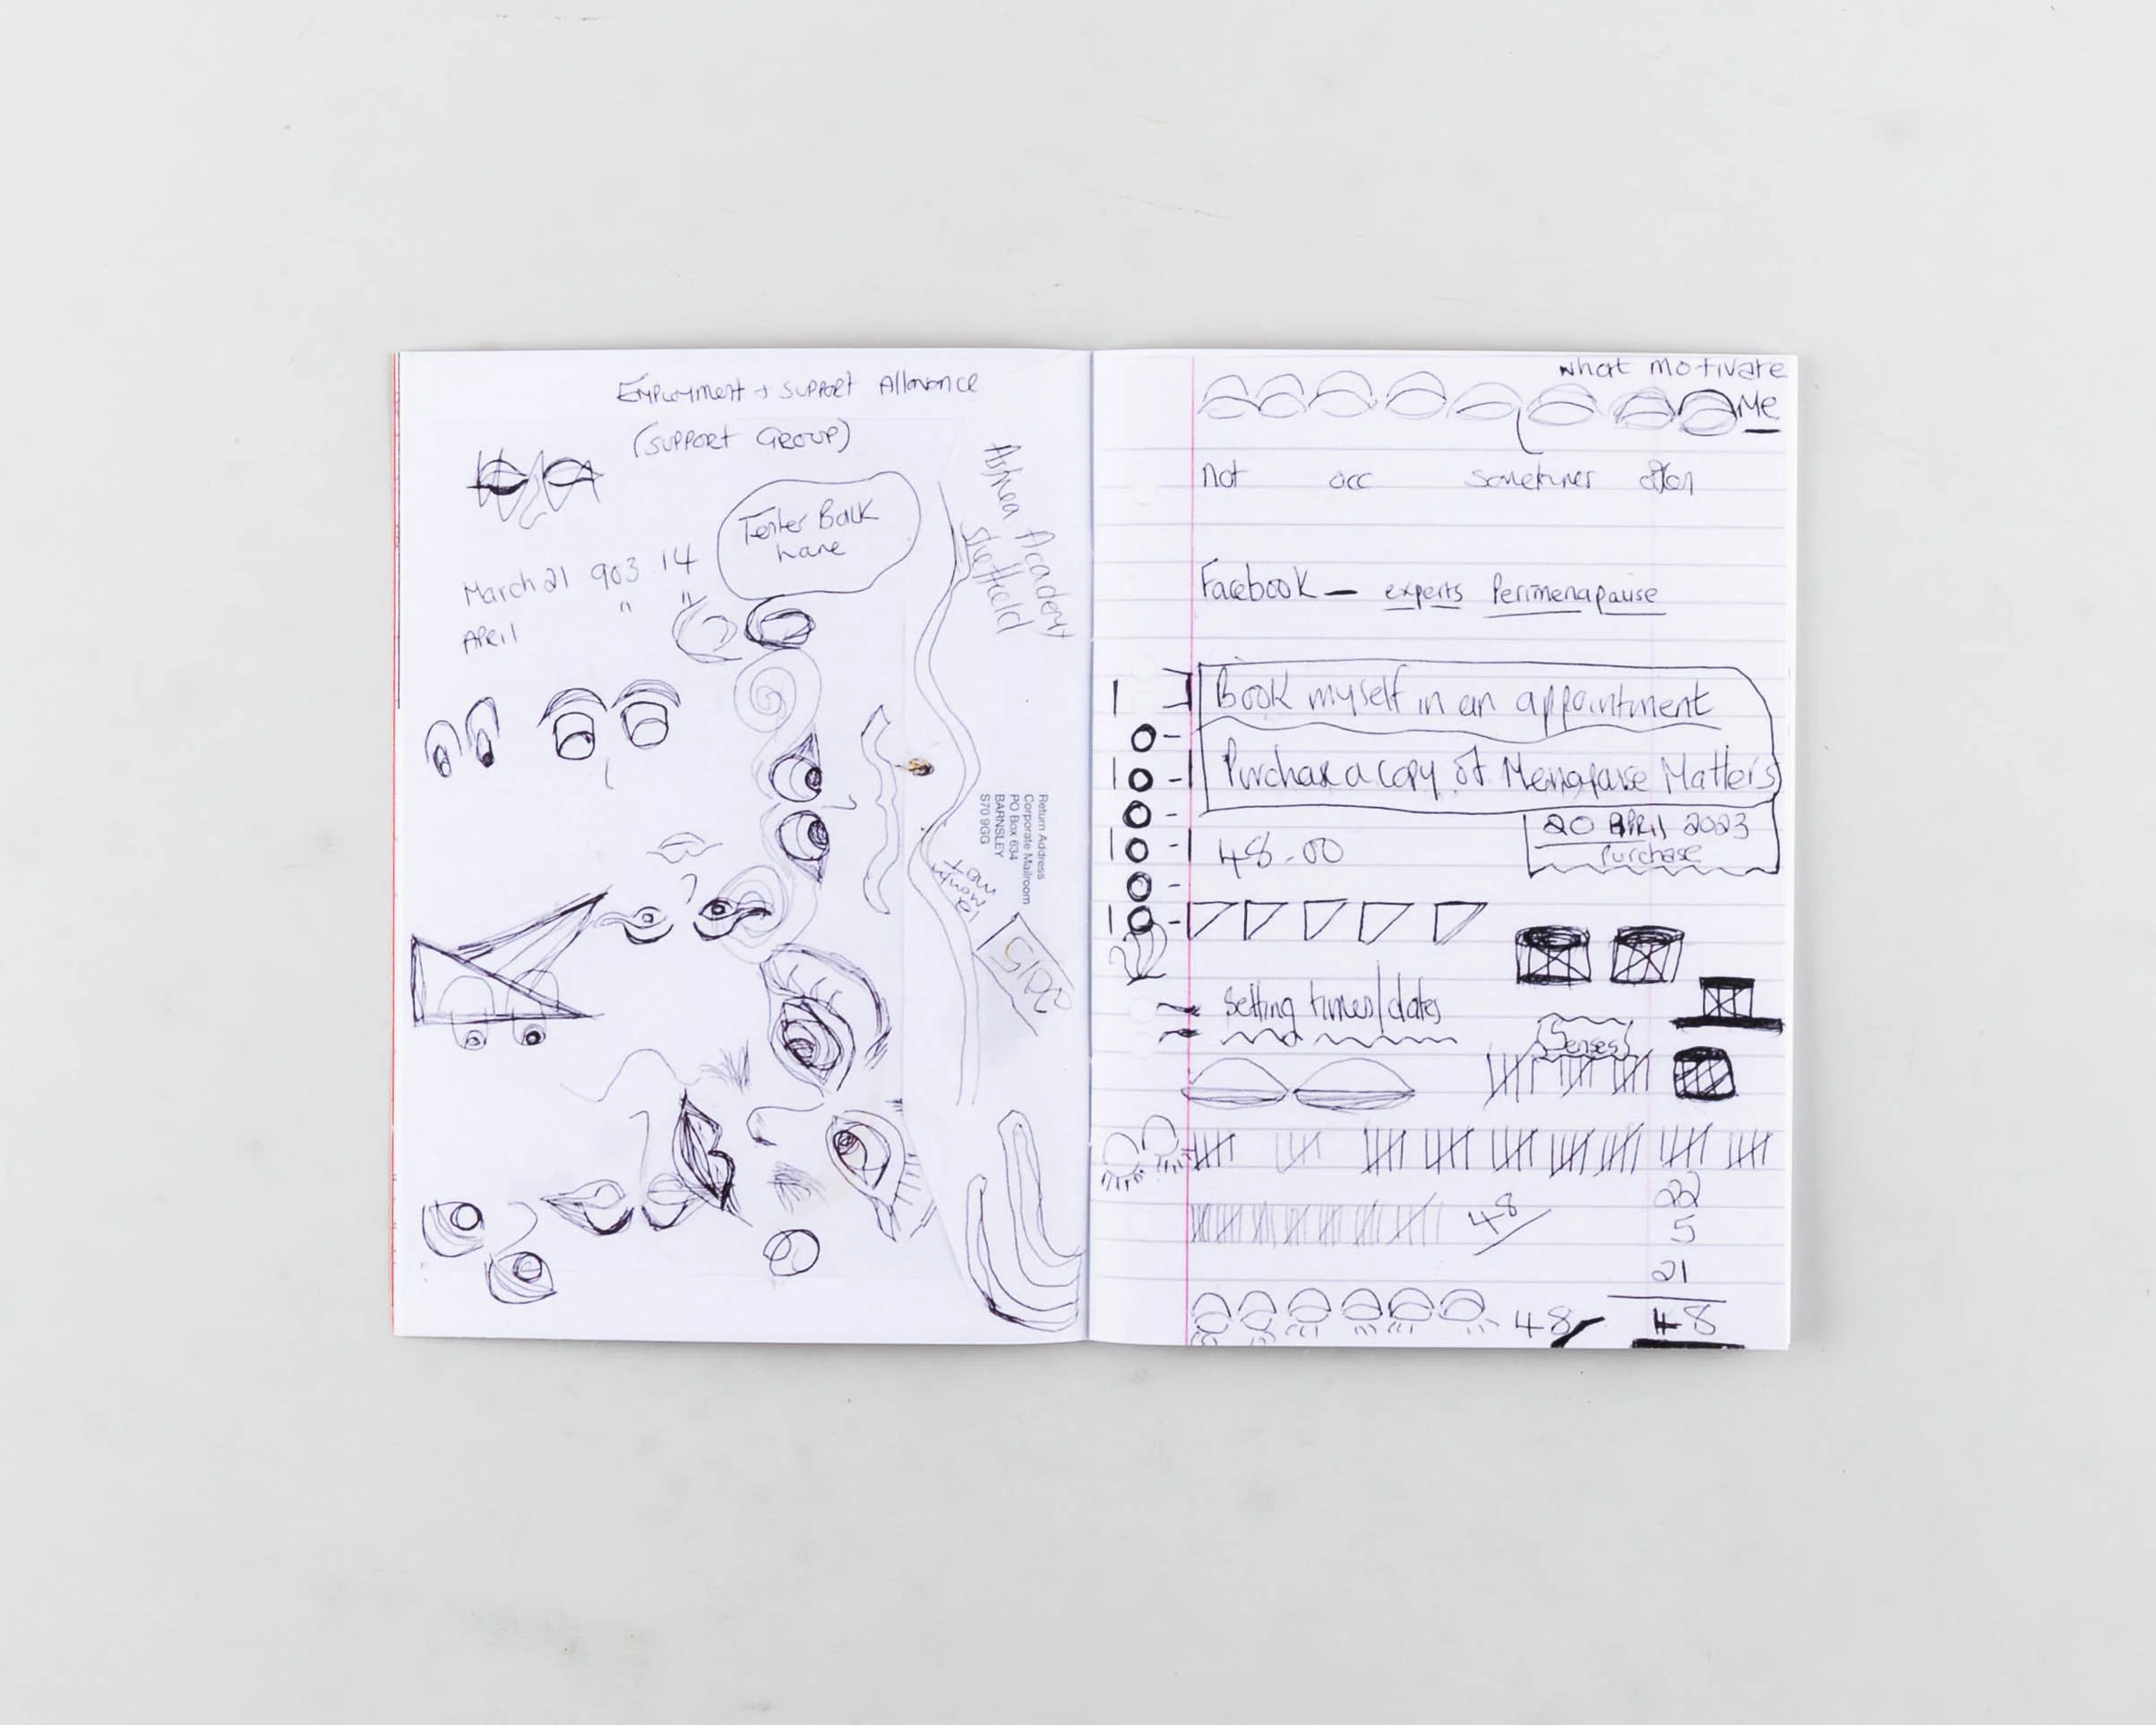 Employment + Support Allowance
(Support Group)
March 21 903.14
April " "
Back
Lane
Academy
Sheffield
Return Address
Corporate Mailroom
PO Box 634
BARNSLEY
S70 9GG
what motivate
Me
not occ sometimes often
Facebook – experts Perimenapause
Book myself in an appointment
Purchase a copy of Menopause Matters
20 April 2023
Purchase
48.00
Setting times/dates
Senses
48
22
5
21
48
48